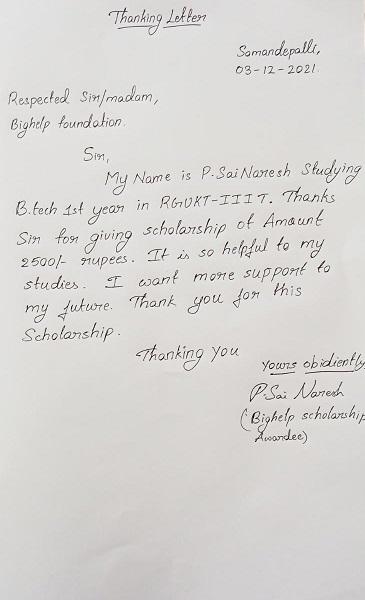 Thanking Letter
Somandepalli,
03-12-2021.
Respected Sir/madam,
Bighelp foundation.
Sir,
My Name is P.Sai Naresh Studying
B.tech 1st year in RGUKT-IIIT. Thanks
Sir for giving scholarship of Amount
2500/- rupees. It is so helpful to my
studies. I want more support to
my future. Thank you for this
Scholarship.
Thanking You
Yours obidiently
P.Sai Naresh
(Bighelp scholarship
Awardee)